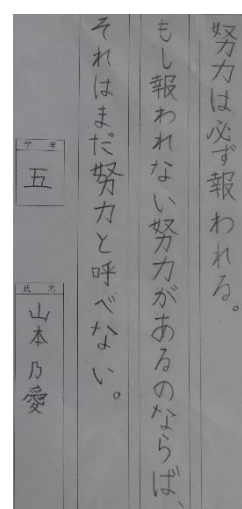 努力は必ず報われる。
もし報われない努力があるのならば、
それはまだ努力と呼べない。
学年
五
氏名
山本乃愛